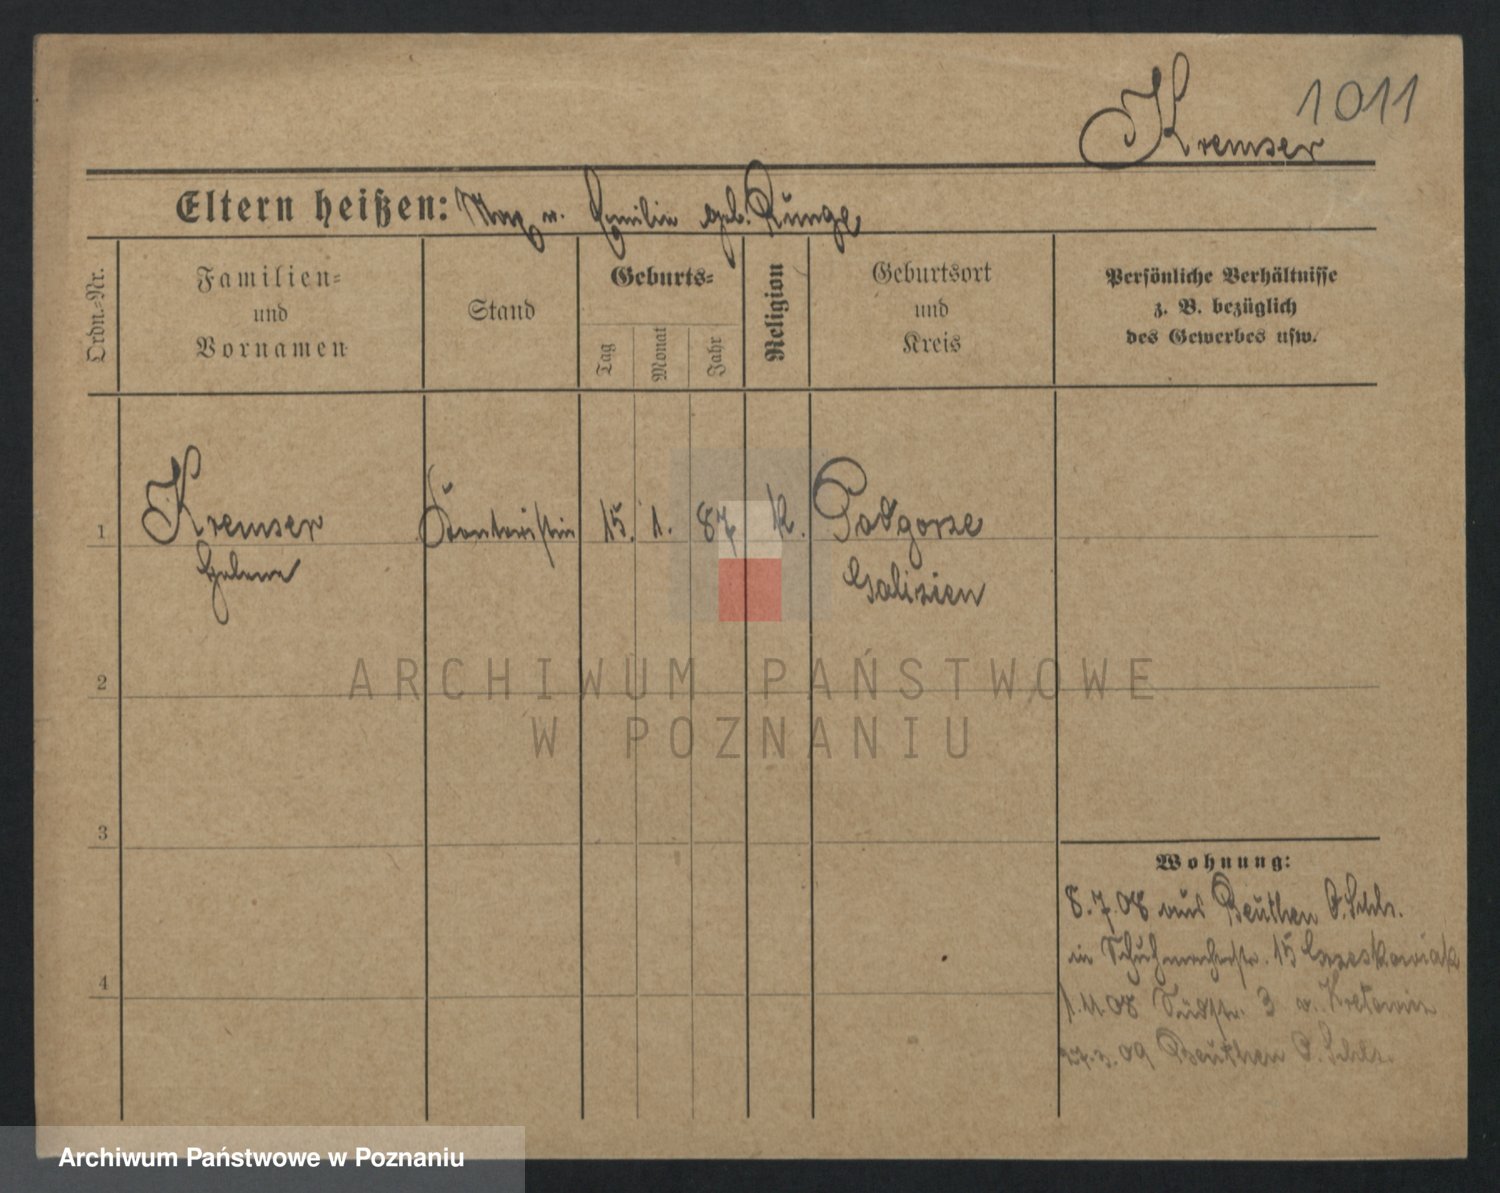 1011
Kremser
Eltern heißen: Max u. Emilie geb. Runge
Ordn.-Nr.
Familien-
und
Vornamen
Stand
Geburts-
Tag
Monat
Jahr
Religion
Geburtsort
und
Kreis
Persönliche Verhältnisse
z. B. bezüglich
des Gewerbes usw.
1 Kremser Kontoristin 15. 1. 87 k. Podgorze
Helene Galizien
ARCHIWUM PAŃSTWOWE
W POZNANIU
2
3
4
Wohnung:
8.7.08 aus Beuthen O.Schls.
in Schuhmacherstr. 15
1.11.08 Südstr. 3 v.
27.3.09 Beuthen O.Schls.
Archiwum Państwowe w Poznaniu